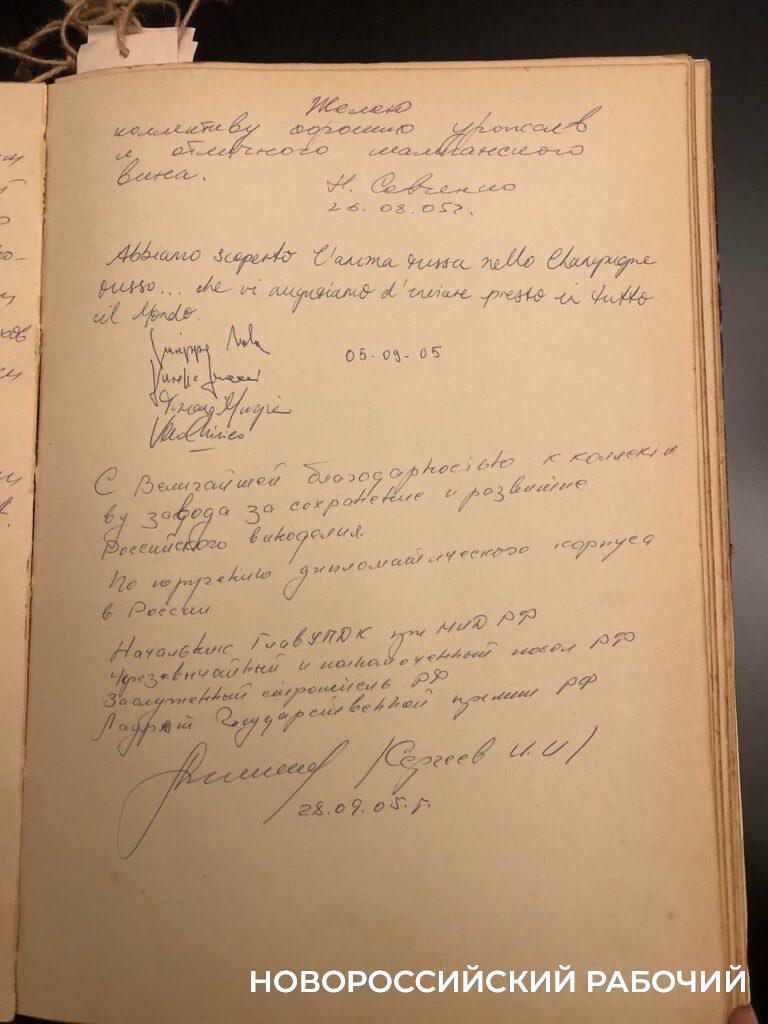 Желаю
коллективу хороших урожаев
и отличного шампанского
вина.
Н. Савченко
26.08.05г.
Abbiamo scoperto l'anima russa nello Champagne
russo... che vi auguriamo d'inviare presto in tutto
il Mondo.
05-09-05
С Величайшей благодарностью к коллекти
ву завода за сохранение и развитие
Российского виноделия.
По поручению дипломатического корпуса
в России
Начальник ГлавУПДК при МИД РФ
Чрезвычайный и полномочный посол РФ
Заслуженный строитель РФ
Лауреат Государственной премии РФ
/Сергеев И.И/
28.09.05.г.
НОВОРОССИЙСКИЙ РАБОЧИЙ